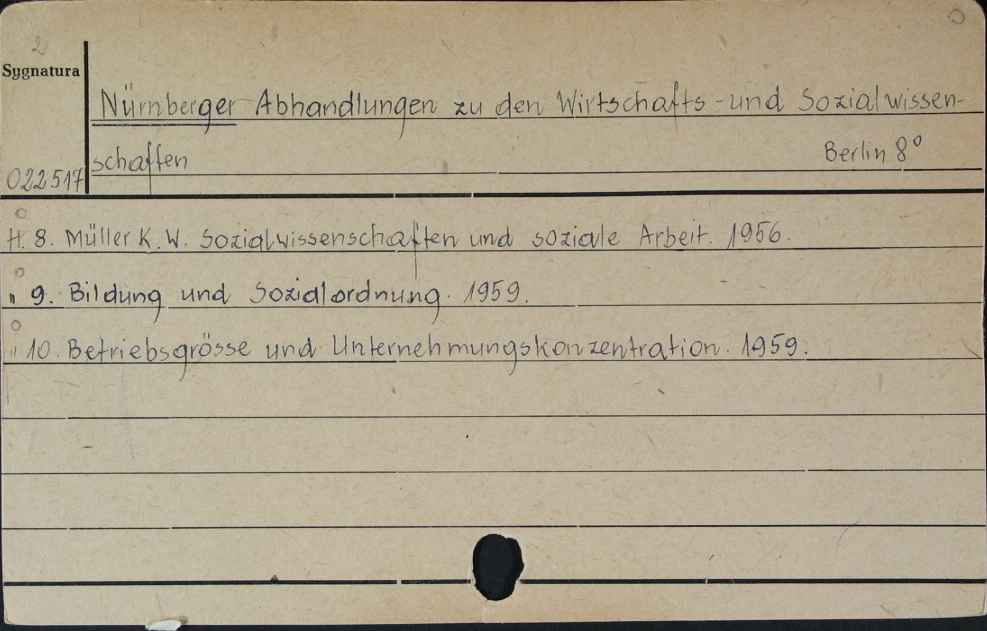 2
Sygnatura
Nürnberger Abhandlungen zu den Wirtschafts- und Sozialwissen-
schaffen Berlin 8°
022517
H. 8. Müller K. W. Sozialwissenschaften und soziale Arbeit. 1956.
" 9. Bildung und Sozialordnung. 1959.
" 10. Betriebsgrösse und Unternehmungskonzentration. 1959.